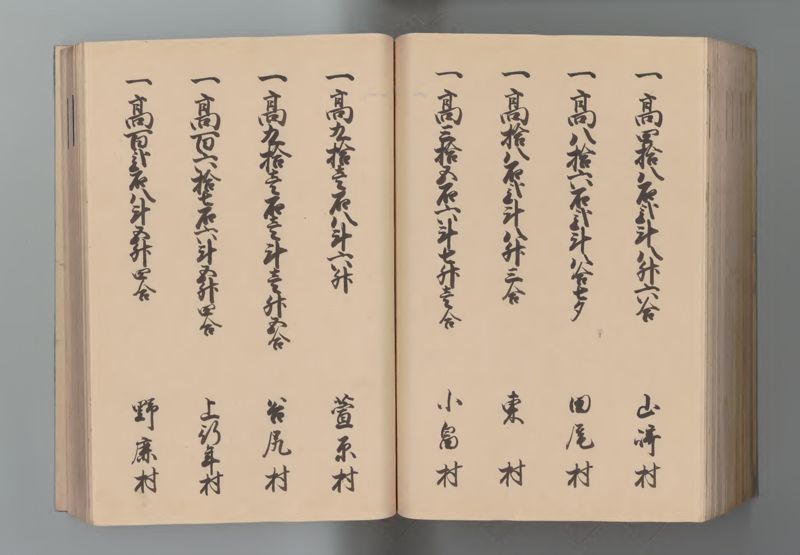 一高四拾八石弐斗八升六合 山崎村
一高八拾六石弐斗八合七夕 田尾村
一高拾八石弐斗八升三合 東村
一高三拾五石六斗七升壱合 小畠村
一高九拾壱石八斗六升 萱原村
一高九拾壱石壱斗壱升五合 谷尻村
一高百六拾七石六斗五升四合 上行年村
一高百弐石八斗五升四合 野鹿村